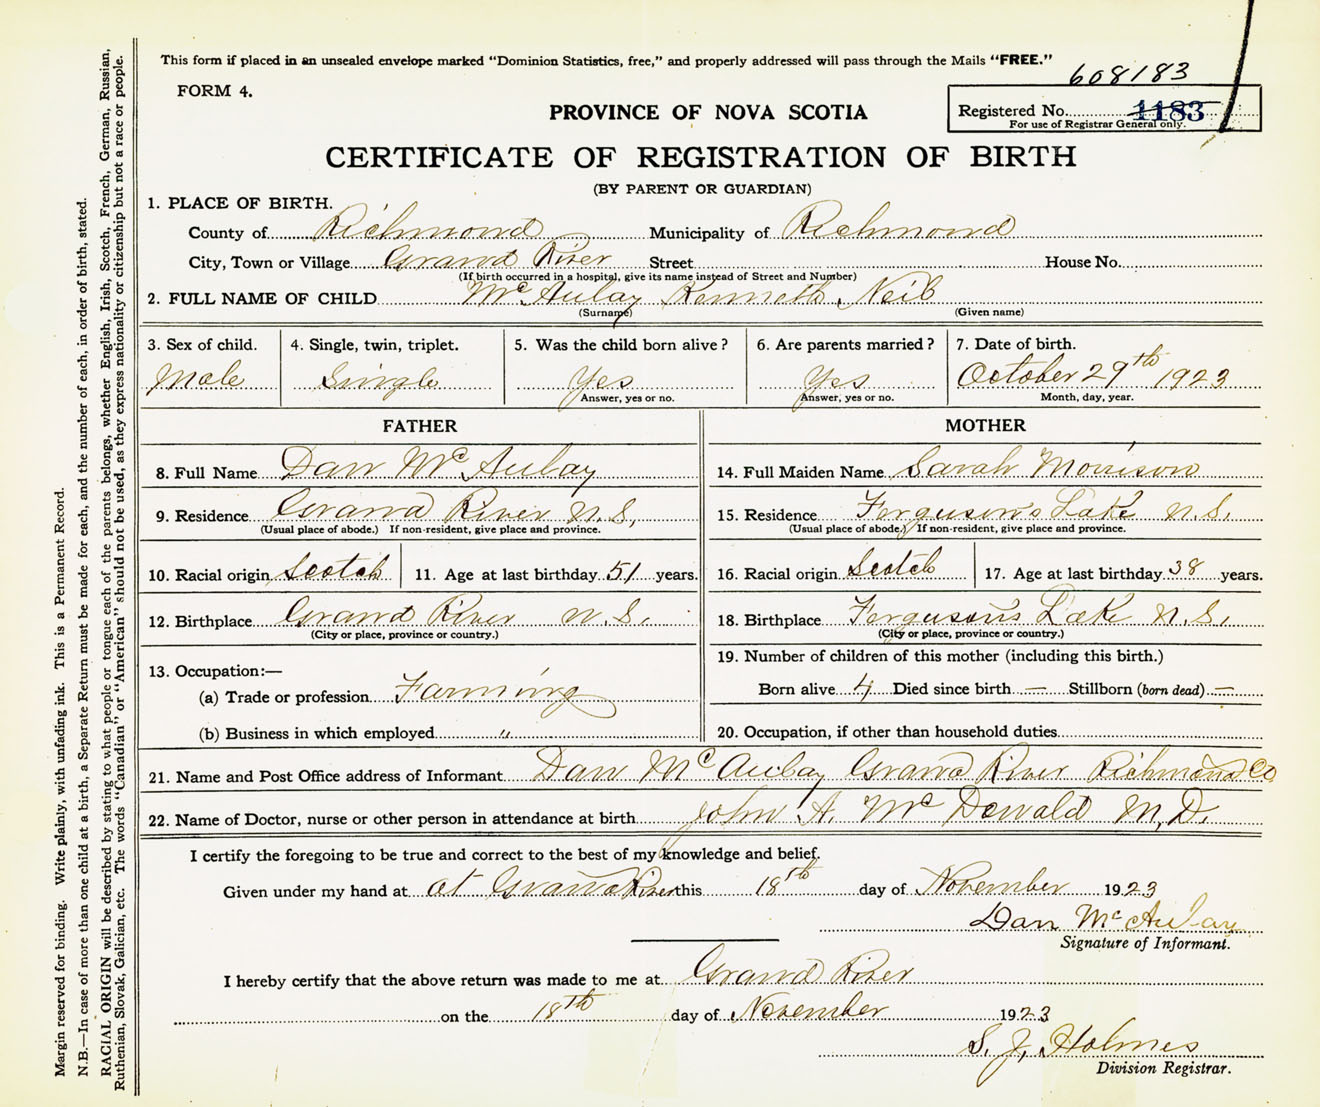 This form if placed in an unsealed envelope marked "Dominion Statistics, free," and properly addressed will pass through the Mails "FREE."
608183
FORM 4.
PROVINCE OF NOVA SCOTIA
Registered No. 1183
For use of Registrar General only.
CERTIFICATE OF REGISTRATION OF BIRTH
(BY PARENT OR GUARDIAN)
1. PLACE OF BIRTH.
County of Richmond Municipality of Richmond
City, Town or Village Grand River Street House No.
(If birth occurred in a hospital, give its name instead of Street and Number)
2. FULL NAME OF CHILD McAulay Kenneth Neil
(Surname) (Given name)
3. Sex of child. 4. Single, twin, triplet. 5. Was the child born alive? 6. Are parents married? 7. Date of birth.
Male Single Yes Yes October 29th 1923
Answer, yes or no. Answer, yes or no. Month, day, year.
FATHER MOTHER
8. Full Name Dan McAulay 14. Full Maiden Name Sarah Morrison
9. Residence Grand River N.S. 15. Residence Ferguson's Lake N.S.
(Usual place of abode.) If non-resident, give place and province. (Usual place of abode.) If non-resident, give place and province.
10. Racial origin Scotch 11. Age at last birthday 51 years. 16. Racial origin Scotch 17. Age at last birthday 38 years.
12. Birthplace Grand River N.S. 18. Birthplace Ferguson's Lake N.S.
(City or place, province or country.) (City or place, province or country.)
13. Occupation:— 19. Number of children of this mother (including this birth.)
(a) Trade or profession Farming Born alive 4 Died since birth — Stillborn (born dead) —
(b) Business in which employed " 20. Occupation, if other than household duties
21. Name and Post Office address of Informant Dan McAulay Grand River Richmond Co
22. Name of Doctor, nurse or other person in attendance at birth John A. McDonald M.D.
I certify the foregoing to be true and correct to the best of my knowledge and belief.
Given under my hand at at Grand River this 18th day of November 1923
Dan McAulay
Signature of Informant.
I hereby certify that the above return was made to me at Grand River
on the 18th day of November 1923
S. J. Holmes
Division Registrar.
Margin reserved for binding. Write plainly, with unfading ink. This is a Permanent Record.
N.B.—In case of more than one child at a birth, a Separate Return must be made for each, and the number of each, in order of birth, stated.
RACIAL ORIGIN will be described by stating to what people or tongue each of the parents belongs, whether English, Irish, Scotch, French, German, Russian,
Ruthenian, Slovak, Galician, etc. The words "Canadian" or "American" should not be used, as they express nationality or citizenship but not a race or people.